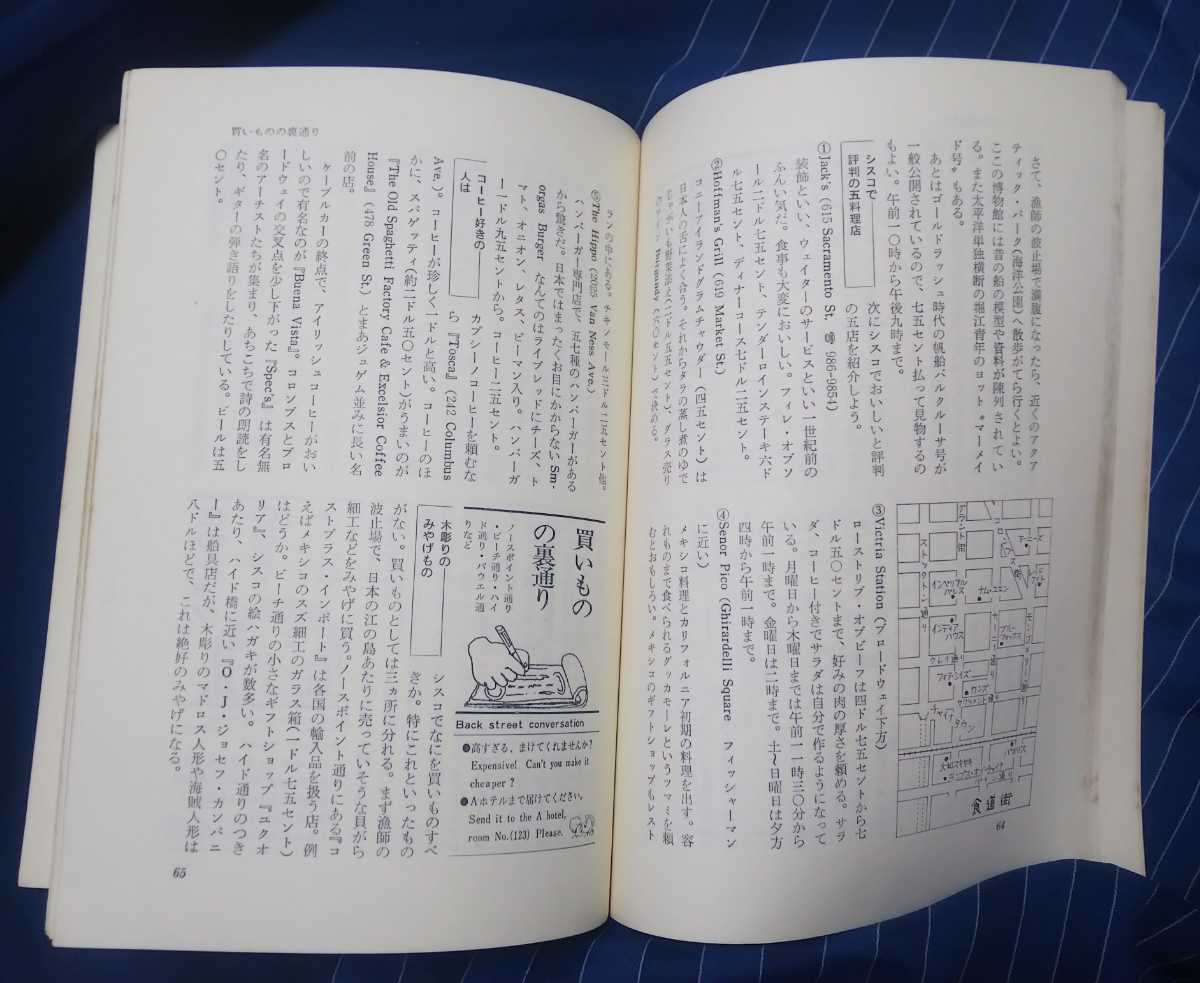 さて、漁師の波止場で満腹になったら、近くのアクア
ティック・パーク(海洋公園)へ散歩がてら行くとよい。
ここの博物館には昔の船の模型や資料が陳列されてい
る。また太平洋単独横断の堀江青年のヨット〝マーメイ
ド号〟もある。
あとはゴールドラッシュ時代の帆船バルクルーサ号が
一般公開されているので、七五セント払って見物するの
もよい。午前一〇時から午後九時まで。
シスコで
評判の五料理店
次にシスコでおいしいと評判
の五店を紹介しよう。
①Jack's (615 Sacramento St. ☎ 986-9854)
装飾といい、ウェイターのサービスといい一世紀前の
ふんい気だ。食事も大変においしい。フィレ・オブソ
ール二ドル七五セント、テンダーロインステーキ六ド
ル七五セント、ディナーコース七ドル二五セント。
②Hoffman's Grill (619 Market St.)
コニーアイランドグラムチャウダー(四五セント)は
日本人の舌によく合う。それからタラの蒸し煮のゆで
じゃがいも野菜添え(二ドル五五セント)、グラス売り
Burgundy
で決める。
ストックトン通り
グラント街
アーニーズ
インペリアル
パレス
ナム・ユエン
インディア
ハウス
ブルー
フォックス
クレイ通り
カンズ
チャイナ
タウン
食道街
64
③Victria Station (ブロードウェイ下方)
ローストリブ・オブビーフは四ドル七五セントから七
ドル五〇セントまで、好みの肉の厚さを頼める。サラ
ダ、コーヒー付きでサラダは自分で作るようになって
いる。月曜日から木曜日までは午前一一時三〇分から
午前一時まで。金曜日は二時まで。土〜日曜日は夕方
四時から午前一時まで。
④Senor Pico (Ghirardelli Square フィッシャーマン
に近い)
メキシコ料理とカリフォルニア初期の料理を出す。容
れものまで食べられるグッカモーレというツマミを頼
むとおもしろい。メキシコのギフトショップもレスト
買いものの裏通り
ランの中にある。チキンモール三ドル二五セント他。
⑤The Hippo (2025 Van Ness Ave.)
ハンバーガー専門店で、五七種のハンバーガーがある
から驚きだ。日本ではまったくお目にかからないSm-
orgas Burger なんてのはライブレッドにチーズ、ト
マト、オニオン、レタス、ピーマン入り。ハンバーガ
ー一ドル九五セントから。コーヒー二五セント。
コーヒー好きの
人は
カプシーノコーヒーを頼むな
ら『Tosca』(242 Columbus
Ave.)。コーヒーが珍しく一ドルと高い。コーヒーのほ
かに、スパゲッティ(約二ドル五〇セント)がうまいのが
『The Old Spaghetti Factory Cafe & Excelsior Coffee
House』(478 Green St.)とまあジュゲム並みに長い名
前の店。
ケーブルカーの終点で、アイリッシュコーヒーがおい
しいので有名なのが『Buena Vista』。コロンブスとブロ
ードウェイの交叉点を少し下がった『Spec's』は有名無
名のアーチストたちが集まり、あちこちで詩の朗読をし
たり、ギターの弾き語りをしたりしている。ビールは五
〇セント。
買いもの
の裏通り
ノースポイント通り
・ビーチ通り・ハイ
ド通り・パウエル通
りなど
Back street conversation
●高すぎる、まけてくれませんか?
Expensive! Can't you make it
cheaper?
●Aホテルまで届けてください。
Send it to the A hotel,
room No.(123) Please.
木彫りの
みやげもの
シスコでなにを買いものすべ
きか。特にこれといったもの
がない。買いものとしては三ヵ所に分れる。まず漁師の
波止場で、日本の江の島あたりに売っていそうな貝がら
細工などをみやげに買う。ノースポイント通りにある『コ
ストプラス・インポート』は各国の輸入品を扱う店。例
えばメキシコのスズ細工のガラス箱(一ドル七五セント)
はどうか。ビーチ通りの小さなギフトショップ『ユクオ
リア』、シスコの絵ハガキが数多い。ハイド通りのつき
あたり、ハイド橋に近い『O・J・ジョセフ・カンパニ
ー』は船具店だが、木彫りのマドロス人形や海賊人形は
八ドルほどで、これは絶好のみやげになる。
65